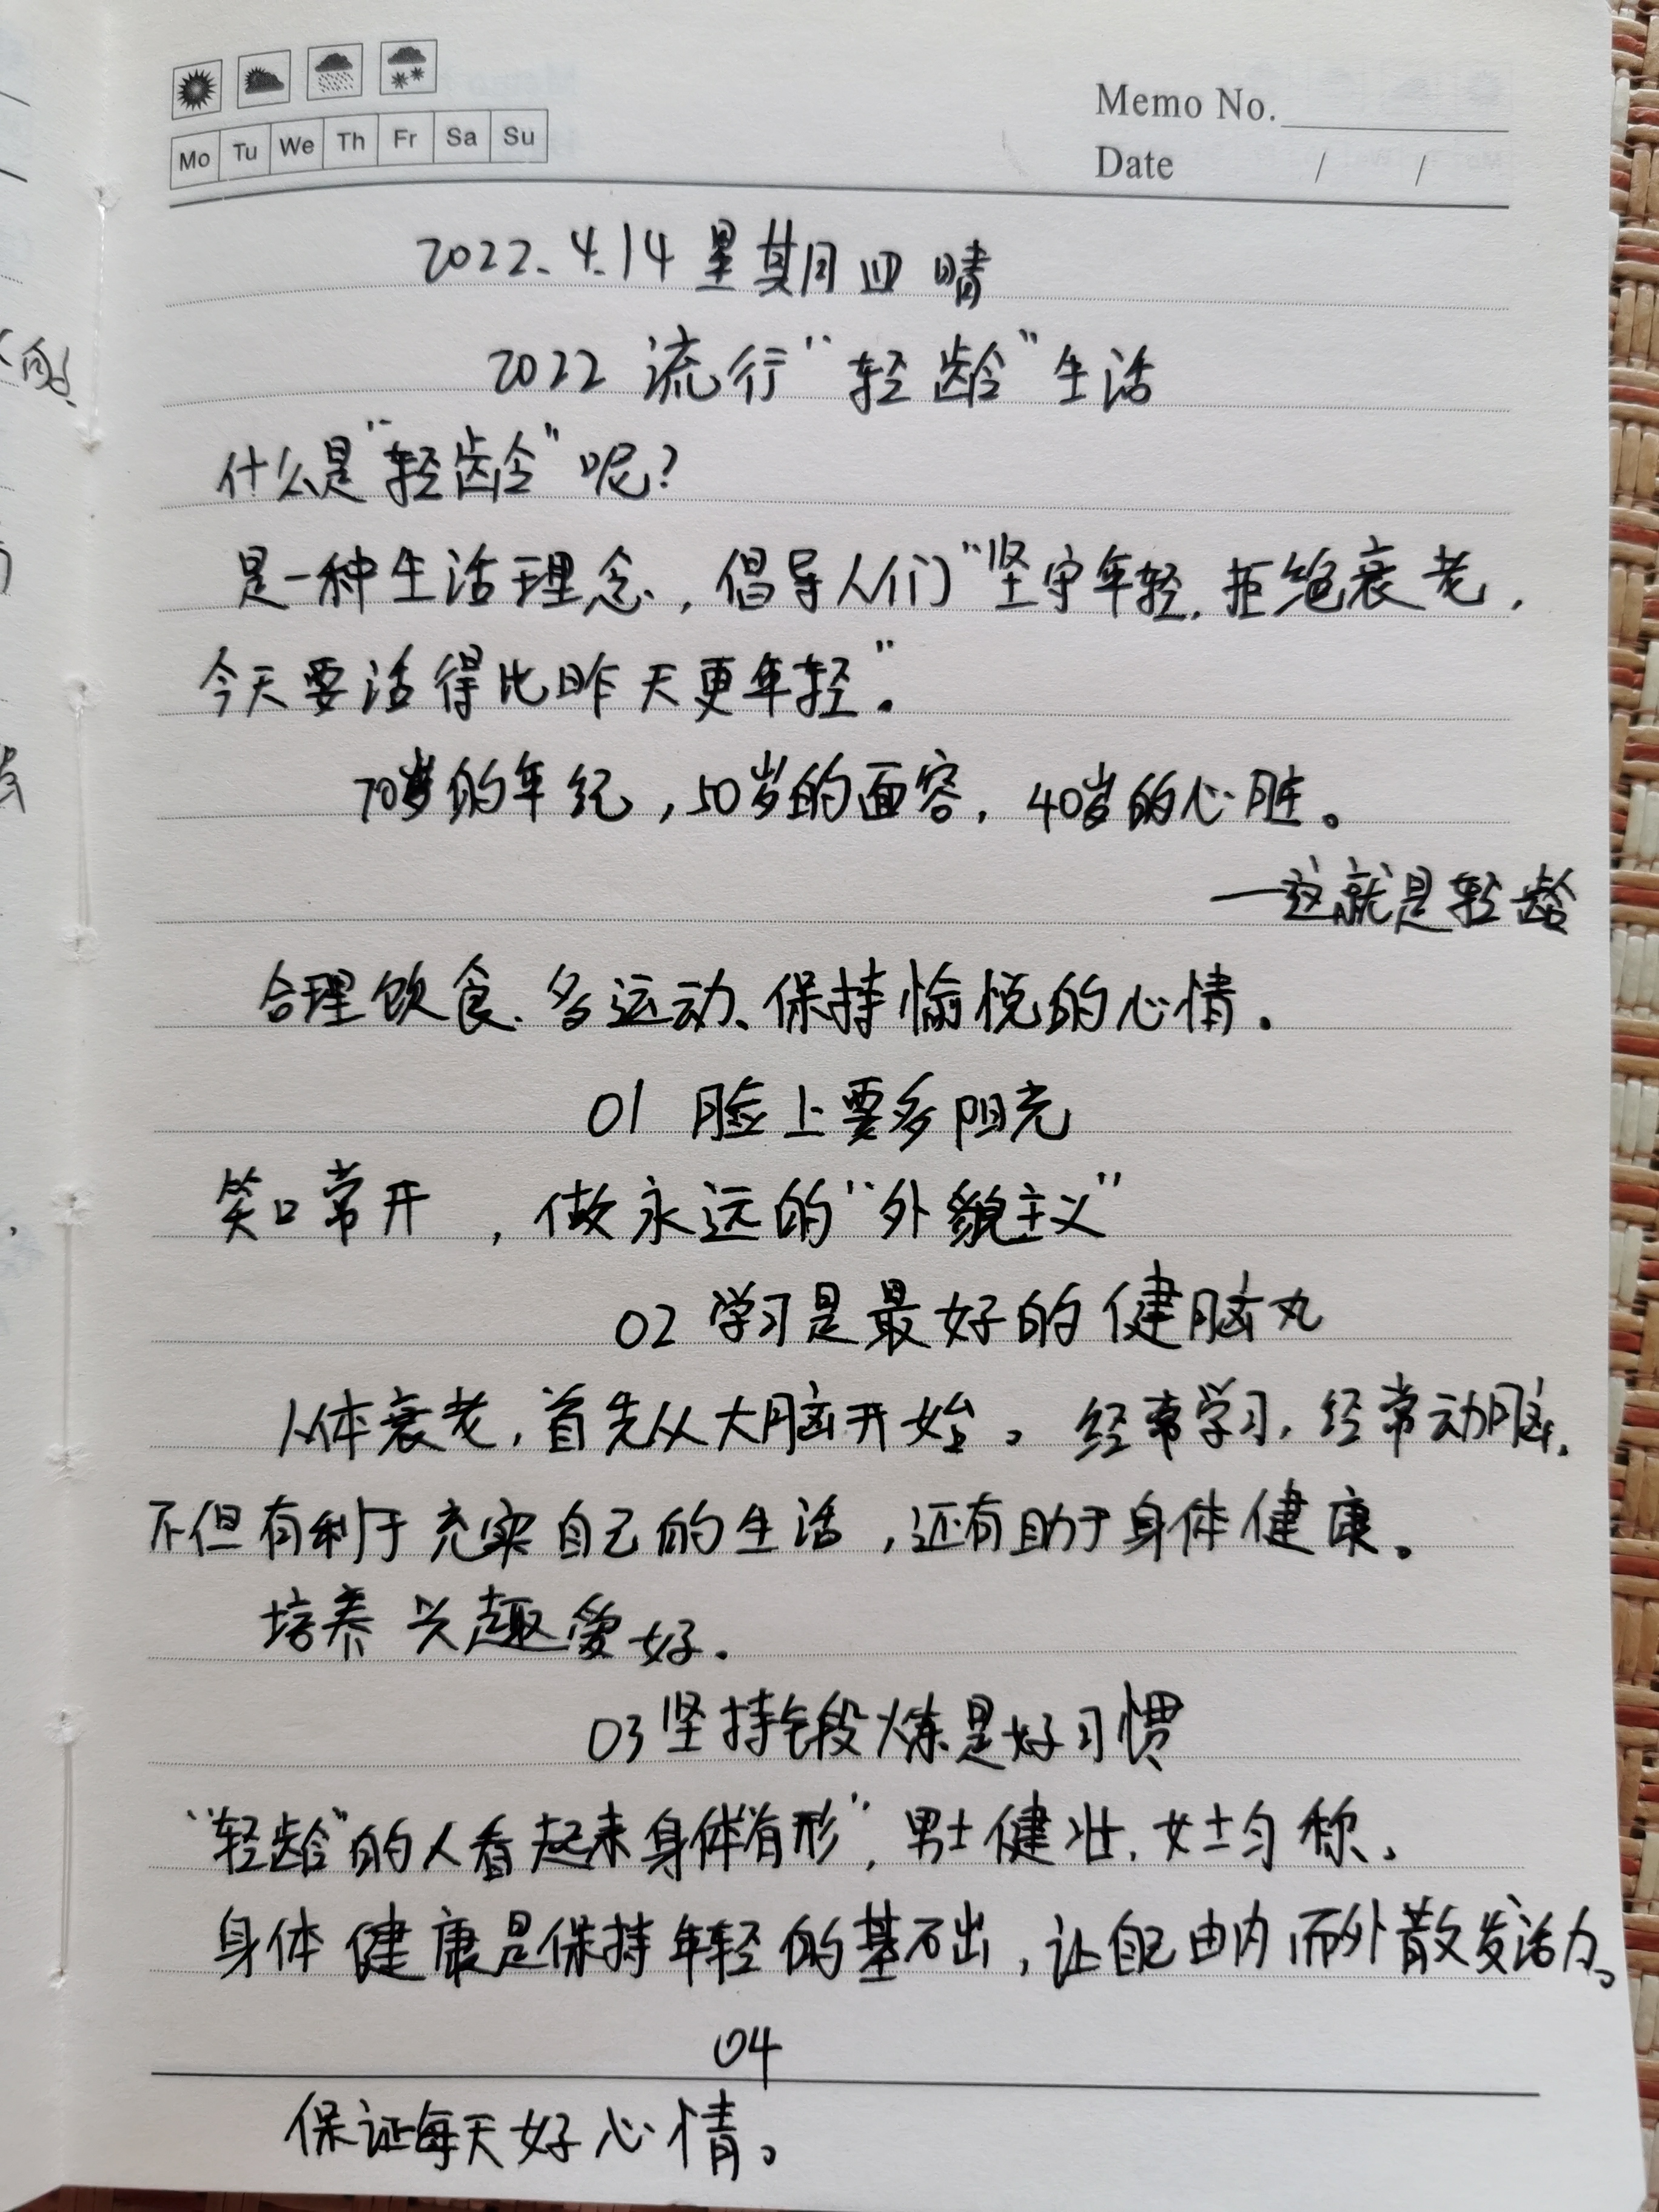 Mo Tu We Th Fr Sa Su
Memo No.
Date / /
2022.4.14 星期四 晴
2022 流行“轻龄”生活
什么是“轻龄”呢?
是一种生活理念,倡导人们“坚守年轻,拒绝衰老,
今天要活得比昨天更年轻”。
70岁的年纪,50岁的面容,40岁的心脏。
—这就是轻龄
合理饮食、多运动、保持愉悦的心情。
01 脸上要多阳光
笑口常开,做永远的“外貌主义”
02 学习是最好的健脑丸
人体衰老,首先从大脑开始。经常学习,经常动脑,
不但有利于充实自己的生活,还有助于身体健康。
培养兴趣爱好。
03 坚持锻炼是好习惯
“轻龄”的人看起来身体“有形”,男士健壮,女士匀称,
身体健康是保持年轻的基础,让自己由内而外散发活力。
04
保证每天好心情。